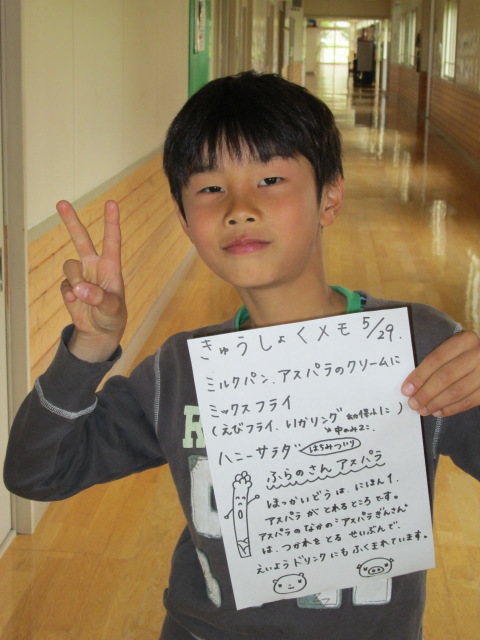 きゅうしょくメモ 5/29.
ミルクパン、アスパラのクリームに
ミックスフライ
(えびフライ、いかリング
ハニーサラダ はちみついり
ふらのさん アスパラ
ほっかいどうは、にほん1、
アスパラがとれるところです。
アスパラのなかの"アスパラぎんさん"
は、つかれをとる せいぶんで、
えいようドリンクにもふくまれています。
R